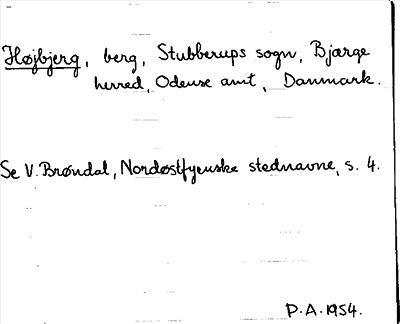 Højbjerg, berg, Stubberups sogn, Bjærge
herred, Odense amt, Danmark.
Se V. Brøndal, Nordøstfyenske stednavne, s. 4.
P.A. 1954.